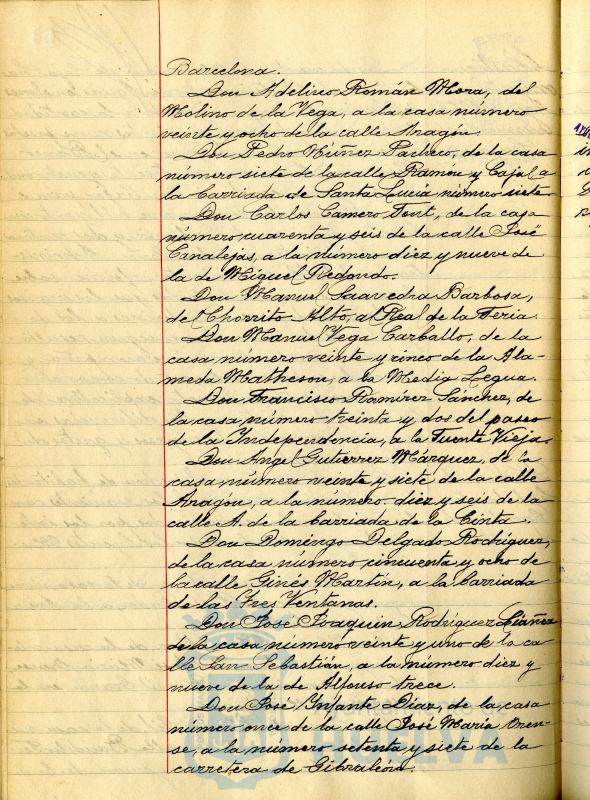 Barcelona.
Don Adelino Román Mora, del
Molino de la Vega, a la casa número
veinte y ocho de la calle Aragón.
Don Pedro Núñez Pacheco, de la casa
número siete de la calle Ramon y Cajal a
la barriada de Santa Lucia número siete.
Don Carlos Camero Font, de la casa
número cuarenta y seis de la calle José
Canalejas, a la número diez y nueve de
la de Miguel Redondo.
Don Manuel Saavedra Barbosa,
del Chorrito Alto, al Real de la Feria.
Don Manuel Vega Carballo, de la
casa número veinte y cinco de la Ala-
meda Matheson, a la Media Legua.
Don Francisco Ramírez Sánchez, de
la casa número treinta y dos del paseo
de la Independencia, a la Fuente Vieja.
Don Angel Gutierrez Márquez, de la
casa número veinte y siete de la calle
Aragón, a la número diez y seis de la
calle A. de la barriada de la Cinta.
Don Domingo Delgado Rodriguez,
de la casa número cincuenta y ocho de
la calle Ginés Martín, a la barriada
de las Tres Ventanas.
Don José Joaquin Rodríguez
de la casa número veinte y uno de la ca-
lle San Sebastián, a la número diez y
nueve de la de Alfonso trece.
Don José Ynfante Díaz, de la casa
número once de la calle José María Oren-
se, a la número setenta y siete de la
carretera de Gibraleón.